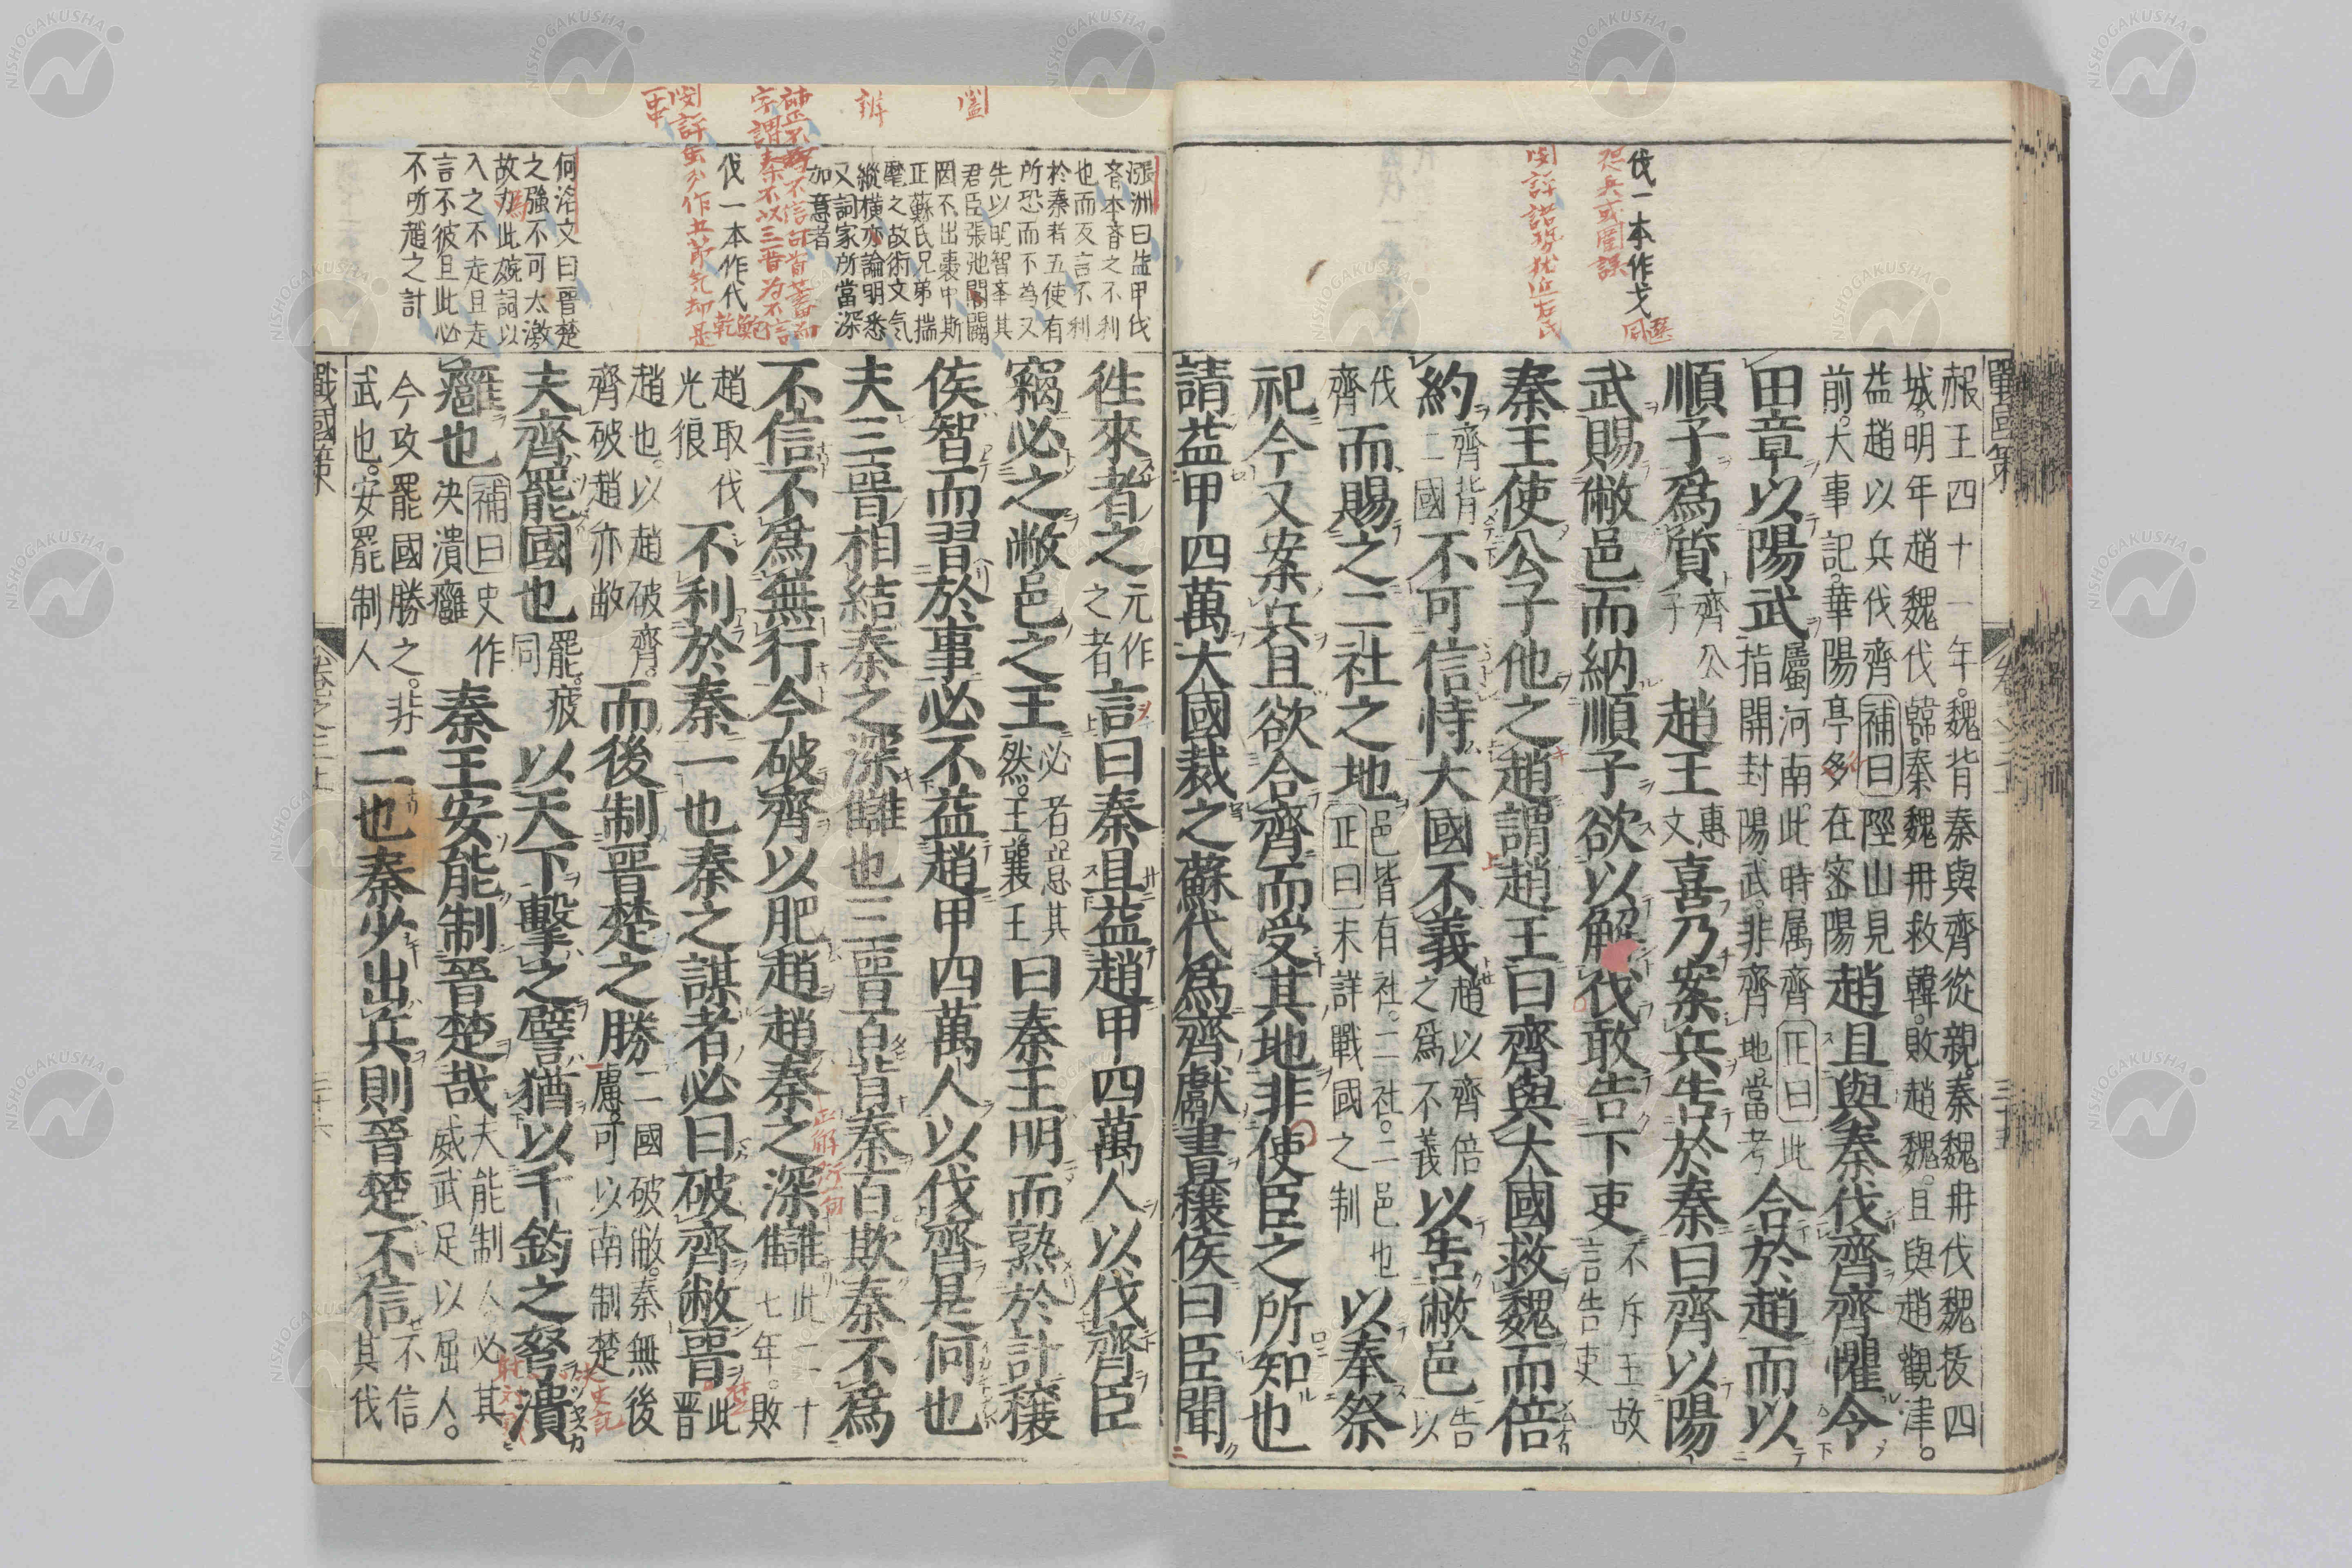 伐一本作戈
戰國策
卷之三上
三十五
赧王四十一年。魏背秦與齊從親。秦魏冉伐魏拔四
城。明年趙魏伐韓。秦魏冉救韓。敗趙魏。且與趙觀津。
益趙以兵伐齊補曰陘山見
前。大事記。華陽亭多在密陽
趙且與秦伐齊齊懼令
田章以陽武
屬河南。此時屬齊正曰此
指開封陽武。非齊地。當考
合於趙而以
順子爲質
齊公
子
趙王
惠
文
喜乃案兵告於秦曰齊以陽
武賜敝邑而納順子欲以解伐敢告下吏
不斥王故
言告吏
秦王使公子他之趙謂趙王曰齊與大國救魏而倍
約
齊背
二國
不可信恃大國不義
趙以齊倍
之爲不義
以告敝邑
告
以
伐
齊
而賜之二社之地
邑皆有社。二社。二邑也
正曰未詳戰國之制
以奉祭
祀今又案兵且欲合齊而受其地非使臣之所知也
請益甲四萬大國裁之蘇代爲齊獻書穰侯曰臣聞
張洲曰益甲伐
齊本齊之不利
也而反言不利
於秦者五使有
所恐而不為又
先以明智牽其
君臣張弛闔闢
罔不出橐中斯
正蘇氏兄弟揣
摩之故術文気
縱橫亦論明悉
又詞家所當深
加意者
伐一本作代
何洛文曰晉楚
之強不可太激
故為此婉詞以
入之不走且走
言不彼且此必
不所趙之計
徃來者之
元作
之者
言曰秦且益趙甲四萬人以伐齊臣
竊必之敝邑之王
必者意其
然。王襄王
曰秦王明而熟於計穰
侯智而習於事必不益趙甲四萬人以伐齊是何也
夫三晉相結秦之深讎也三晉百背秦百欺秦不爲
不信不爲無行今破齊以肥趙趙秦之深讎
此二十
七年。敗
趙取伐
光狼
不利於秦一也秦之謀者必曰破齊敝晉
此
晉
趙也。以趙破齊。
齊破趙亦敝
而後制晉楚之勝
二國破敝。秦無後
慮。可以南制楚
夫齊罷國也
罷。疲
同
以天下擊之譬猶以千鈞之弩潰
癰也
補曰史作
决潰癰
秦王安能制晉楚哉
夫能制人人必其
威武足以屈人。
今攻罷國勝之。非
武也。安罷制人
二也秦少出兵則晉楚不信
不信
其伐
戰國策
卷之三上
三十六
NISHOGAKUSHA